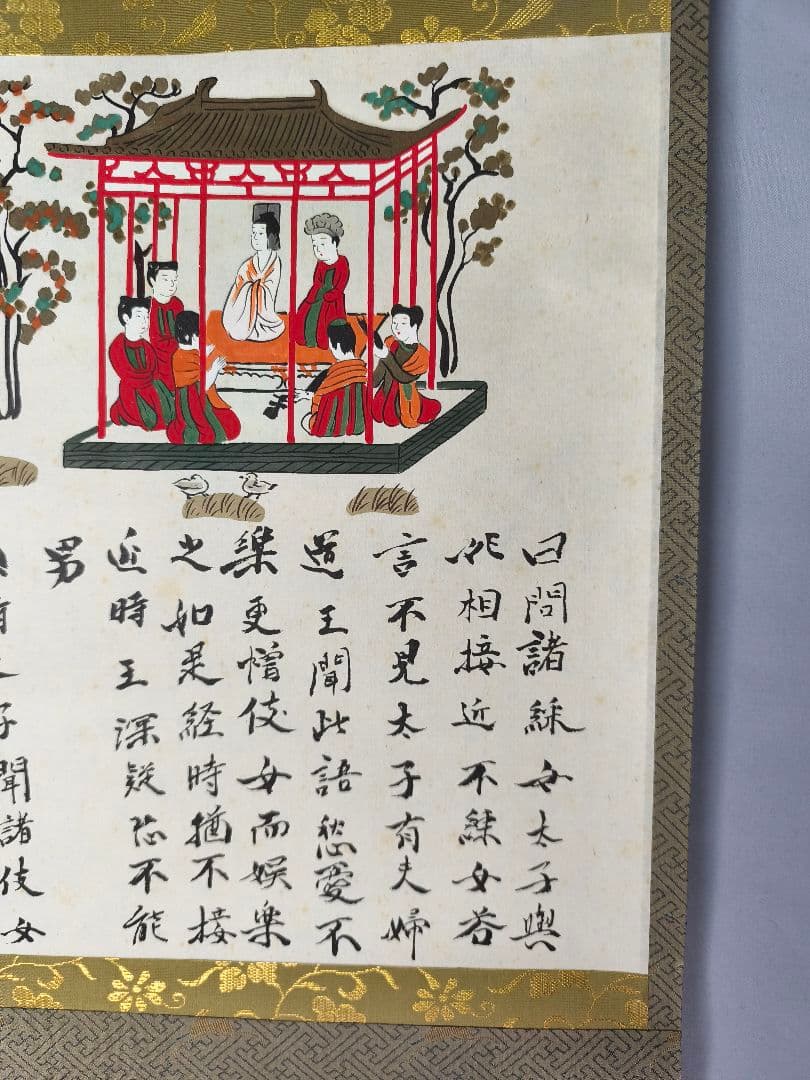 日問諸綵女太子與
妃相接近不綵女答
言不見太子有夫婦
道王聞此語愁憂不
樂更增伎女而娯樂
之如是経時猶不接
近時王深疑恐不能
男
子聞諸伎女